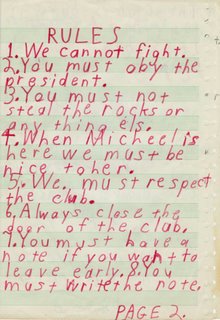 RULES
1. We cannot fight.
2. You must oby the
president.
3. You must not
steal the rocks or
any thing els.
4. When Micheel is
here we must be
nice to her.
5. We, must respect
the club.
6. Always close the
door of the club.
7. You must have a
note if you want to
leave early. 8. You
must write the note.
PAGE 2.